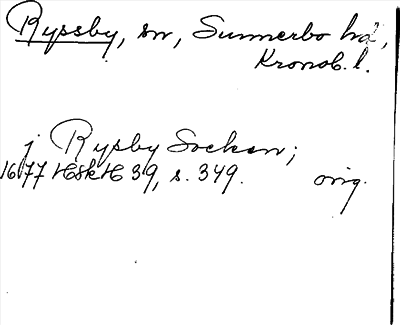 Ryssby, sn, Sunnerbo hd,
Kronob. l.
j Rysby Socken;
1677 HSkH 39, s. 349. orig.